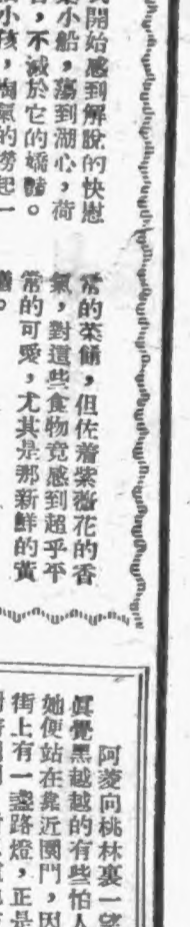 開始感到解脫的快慰
小船，蕩到湖心，荷
，不減於它的嬌豔。
小孩，淘氣的撈起一
常的菜餚，但佐着紫薇花的香
氣，對這些食物竟感到超乎平
常的可愛，尤其是那新鮮的黃
阿菱向桃林裏一望
眞覺黑越越的有些怕人
她便站在靠近園門，因
街上有一盞路燈，正是